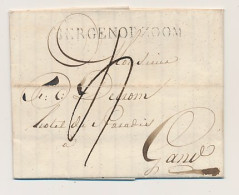 BERGENOPZOOM
Monsieur
hotel de Paradis
a
Gand